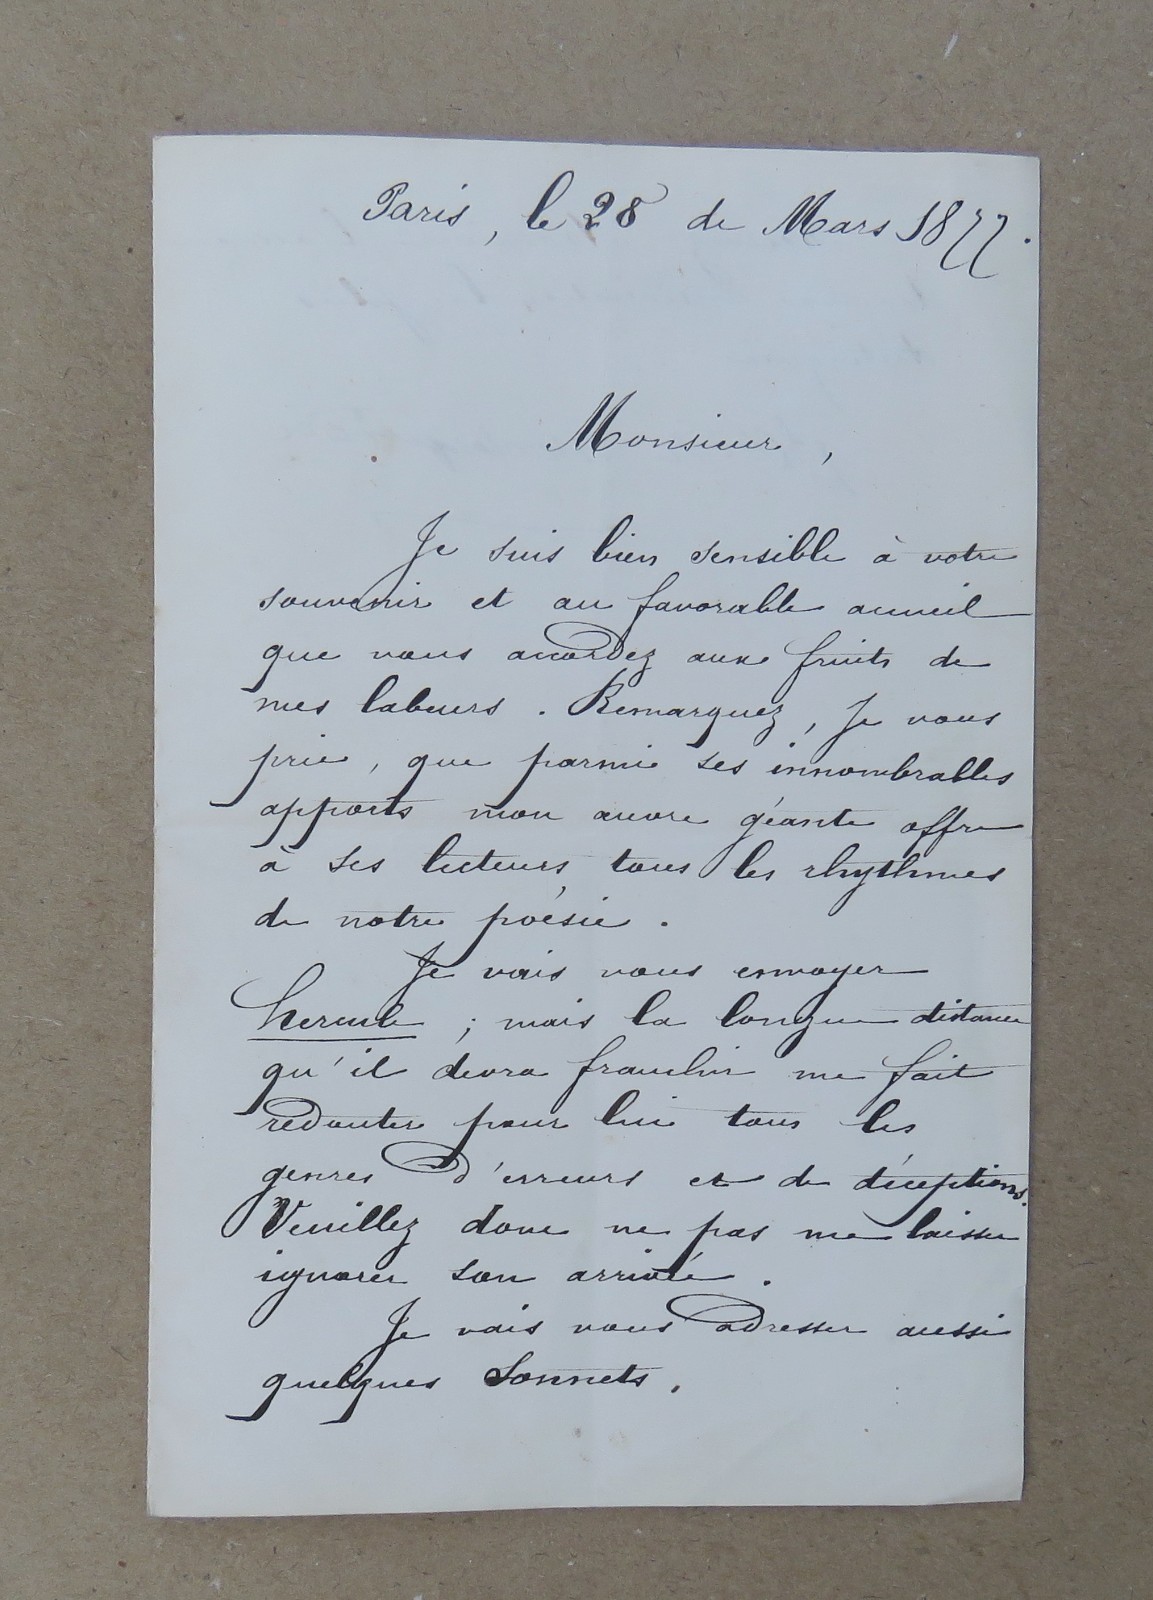 Paris, le 28 de Mars 1877.
Monsieur,
Je suis bien sensible à votre
souvenir et au favorable accueil
que vous accordez aux fruits de
mes labeurs. Remarquez, je vous
prie, que parmi ses innombrables
apports mon œuvre géante offre
à ses lecteurs tous les rhythmes
de notre poésie.
Je vais vous envoyer
Hercule ; mais la longue distance
qu'il devra franchir me fait
redouter pour lui tous les
genres d'erreurs et de déceptions.
Veuillez donc ne pas me laisser
ignorer son arrivée.
Je vais vous adresser aussi
quelques Sonnets.